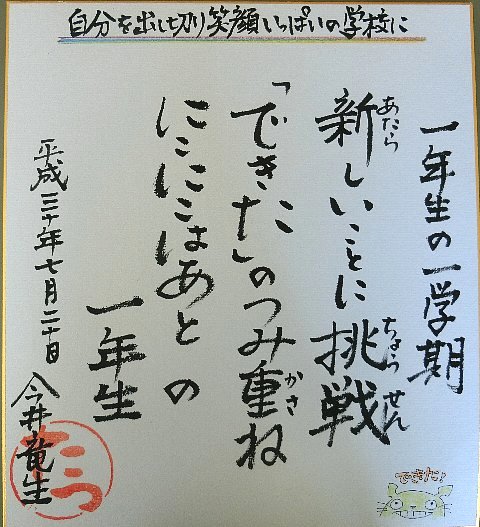 自分を出し切り笑顔いっぱいの学校に
一年生の一学期
新しいことに挑戦
あたら
ちょう せん
「できた」のつみ重ね
かさ
にこにこはあとの
一年生
平成三十年七月二十日
今井竜生
たつ
できた!